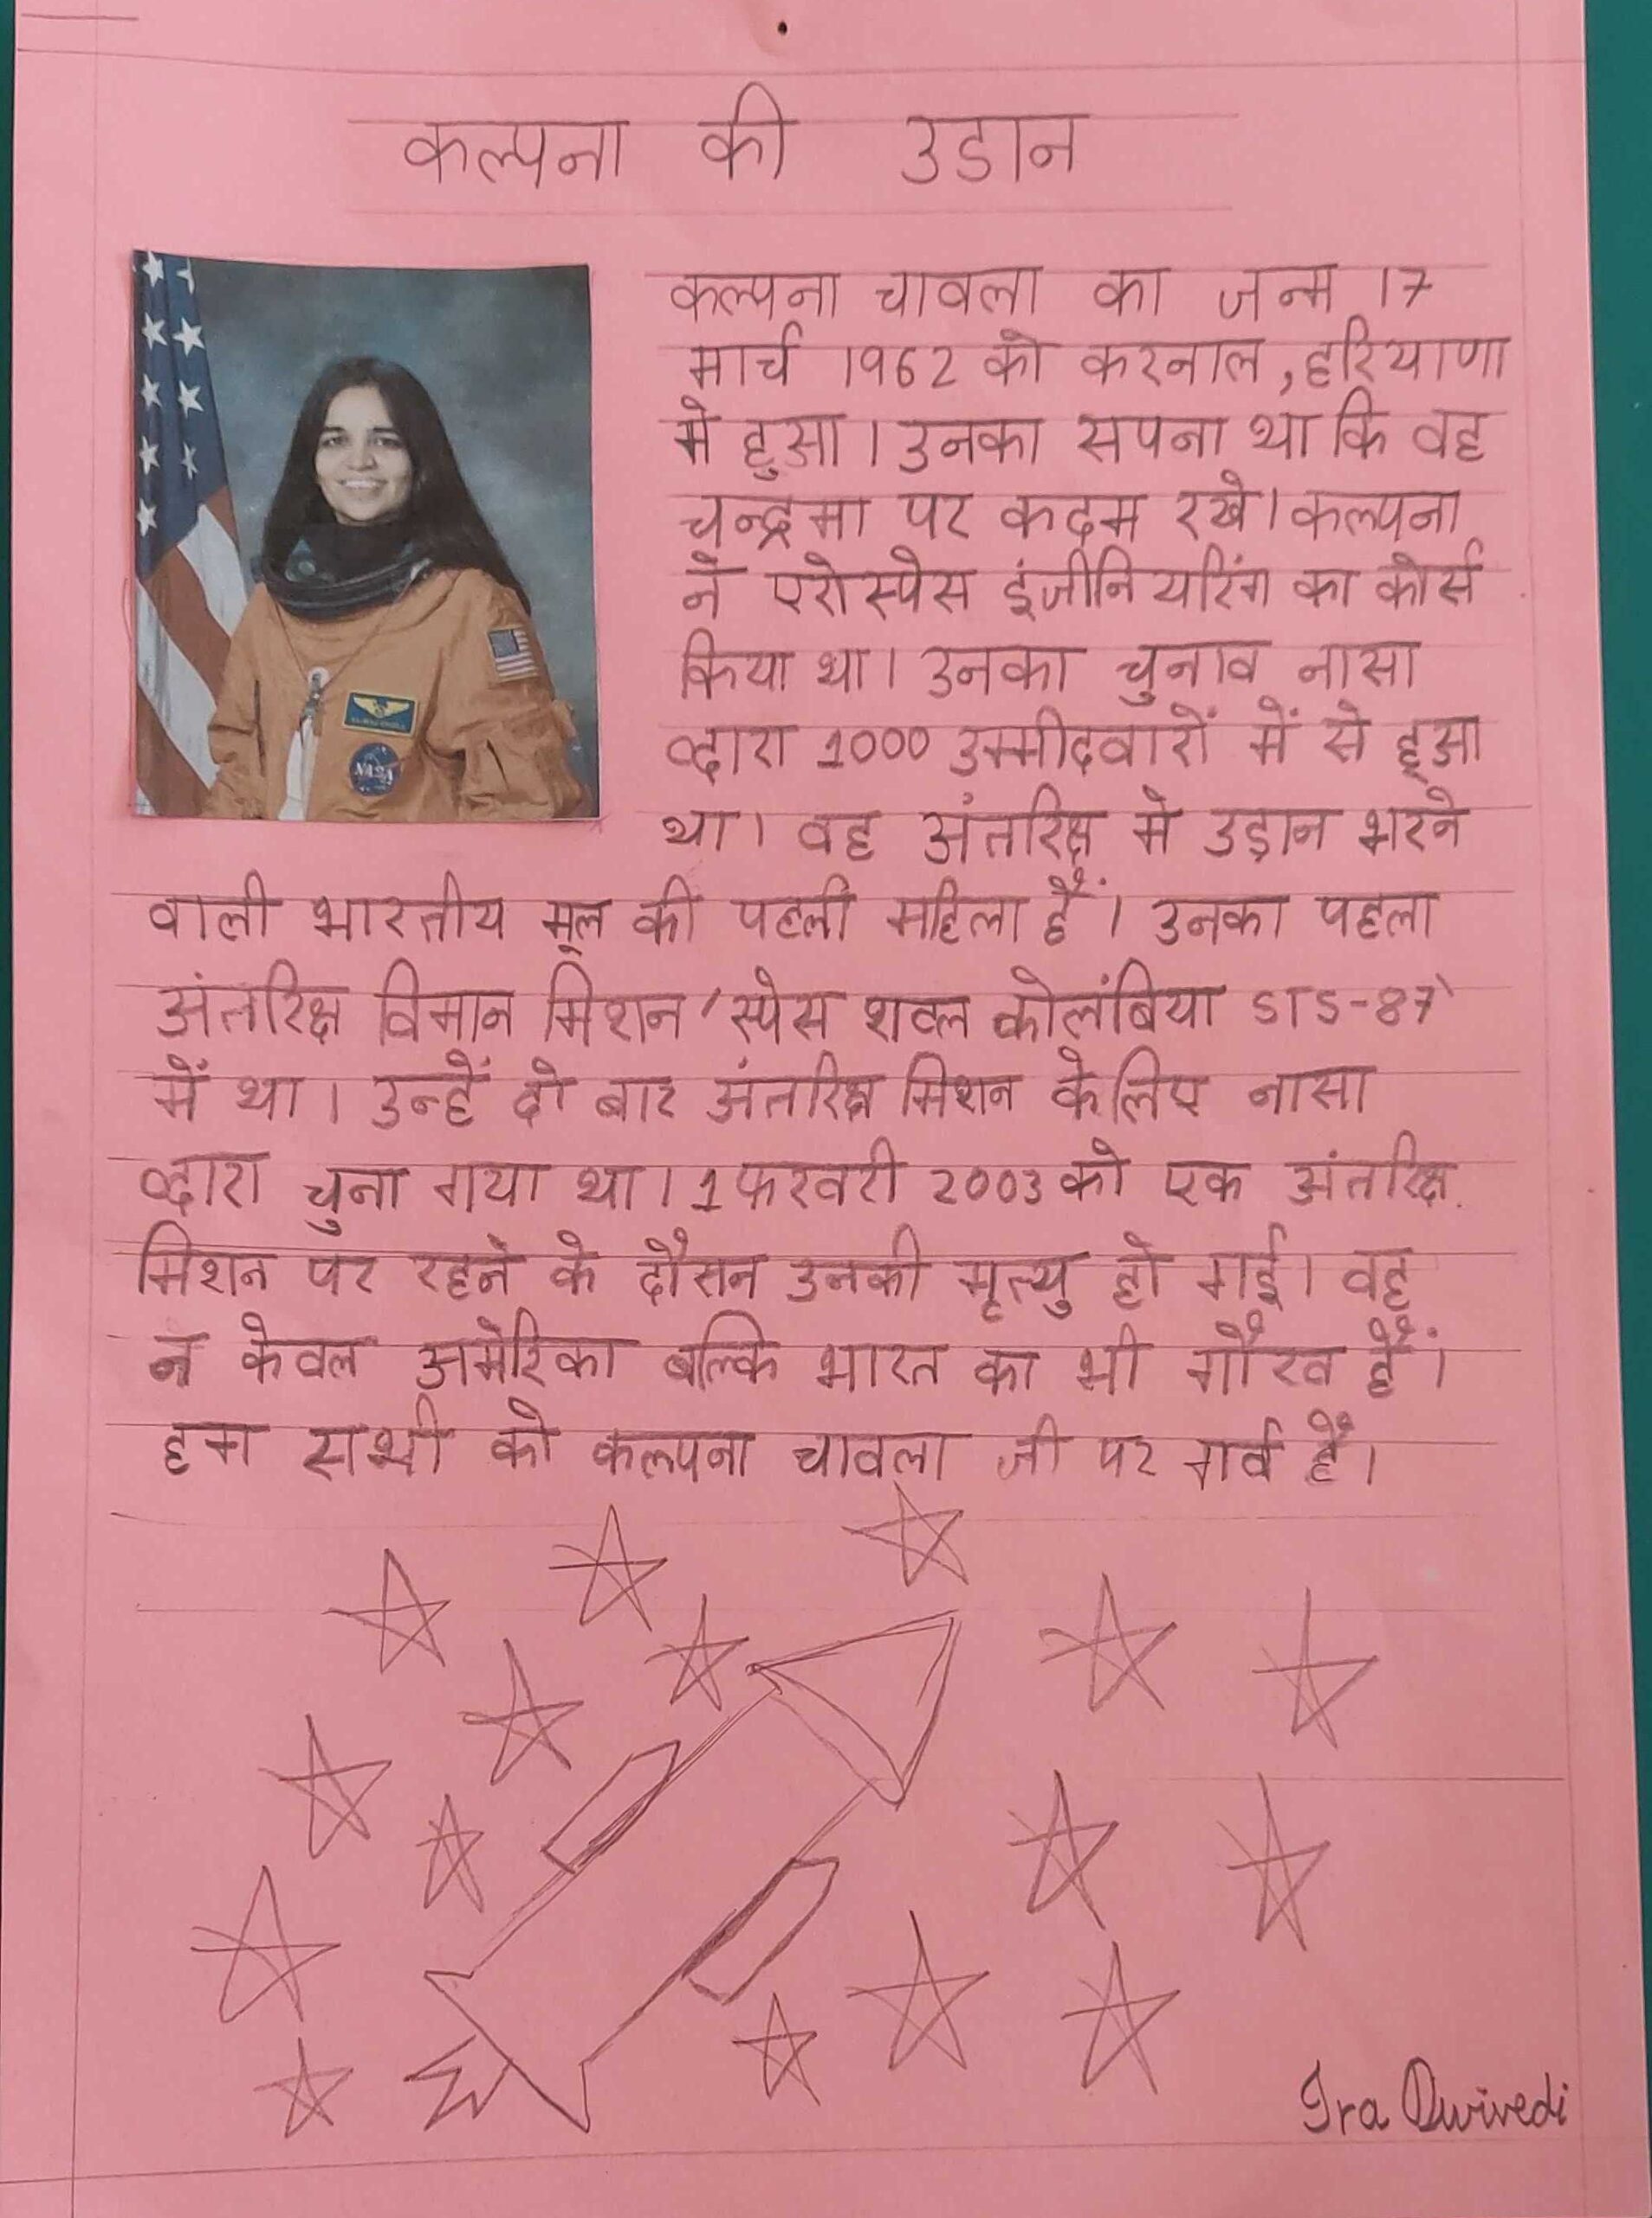 कल्पना की उडान
कल्पना चावला का जन्म 17
मार्च 1962 को करनाल, हरियाणा
मे हुआ। उनका सपना था कि वह
चन्द्रमा पर कदम रखे। कल्पना
ने एरोस्पेस इंजीनियरिंग का कोर्स
किया था। उनका चुनाव नासा
द्वारा 1000 उम्मीदवारों में से हुआ
था। वह अंतरिक्ष मे उड़ान भरने
वाली भारतीय मूल की पहली महिला हैं। उनका पहला
अंतरिक्ष विमान मिशन 'स्पेस शटल कोलंबिया STS-87'
में था। उन्हें दो बार अंतरिक्ष मिशन के लिए नासा
द्वारा चुना गया था। 1 फरवरी 2003 को एक अंतरिक्ष
मिशन पर रहने के दौरान उनकी मृत्यु हो गई। वह
न केवल अमेरिका बल्कि भारत का भी गौरव हैं।
हम सभी को कल्पना चावला जी पर गर्व है।
NASA
Ira Dwivedi